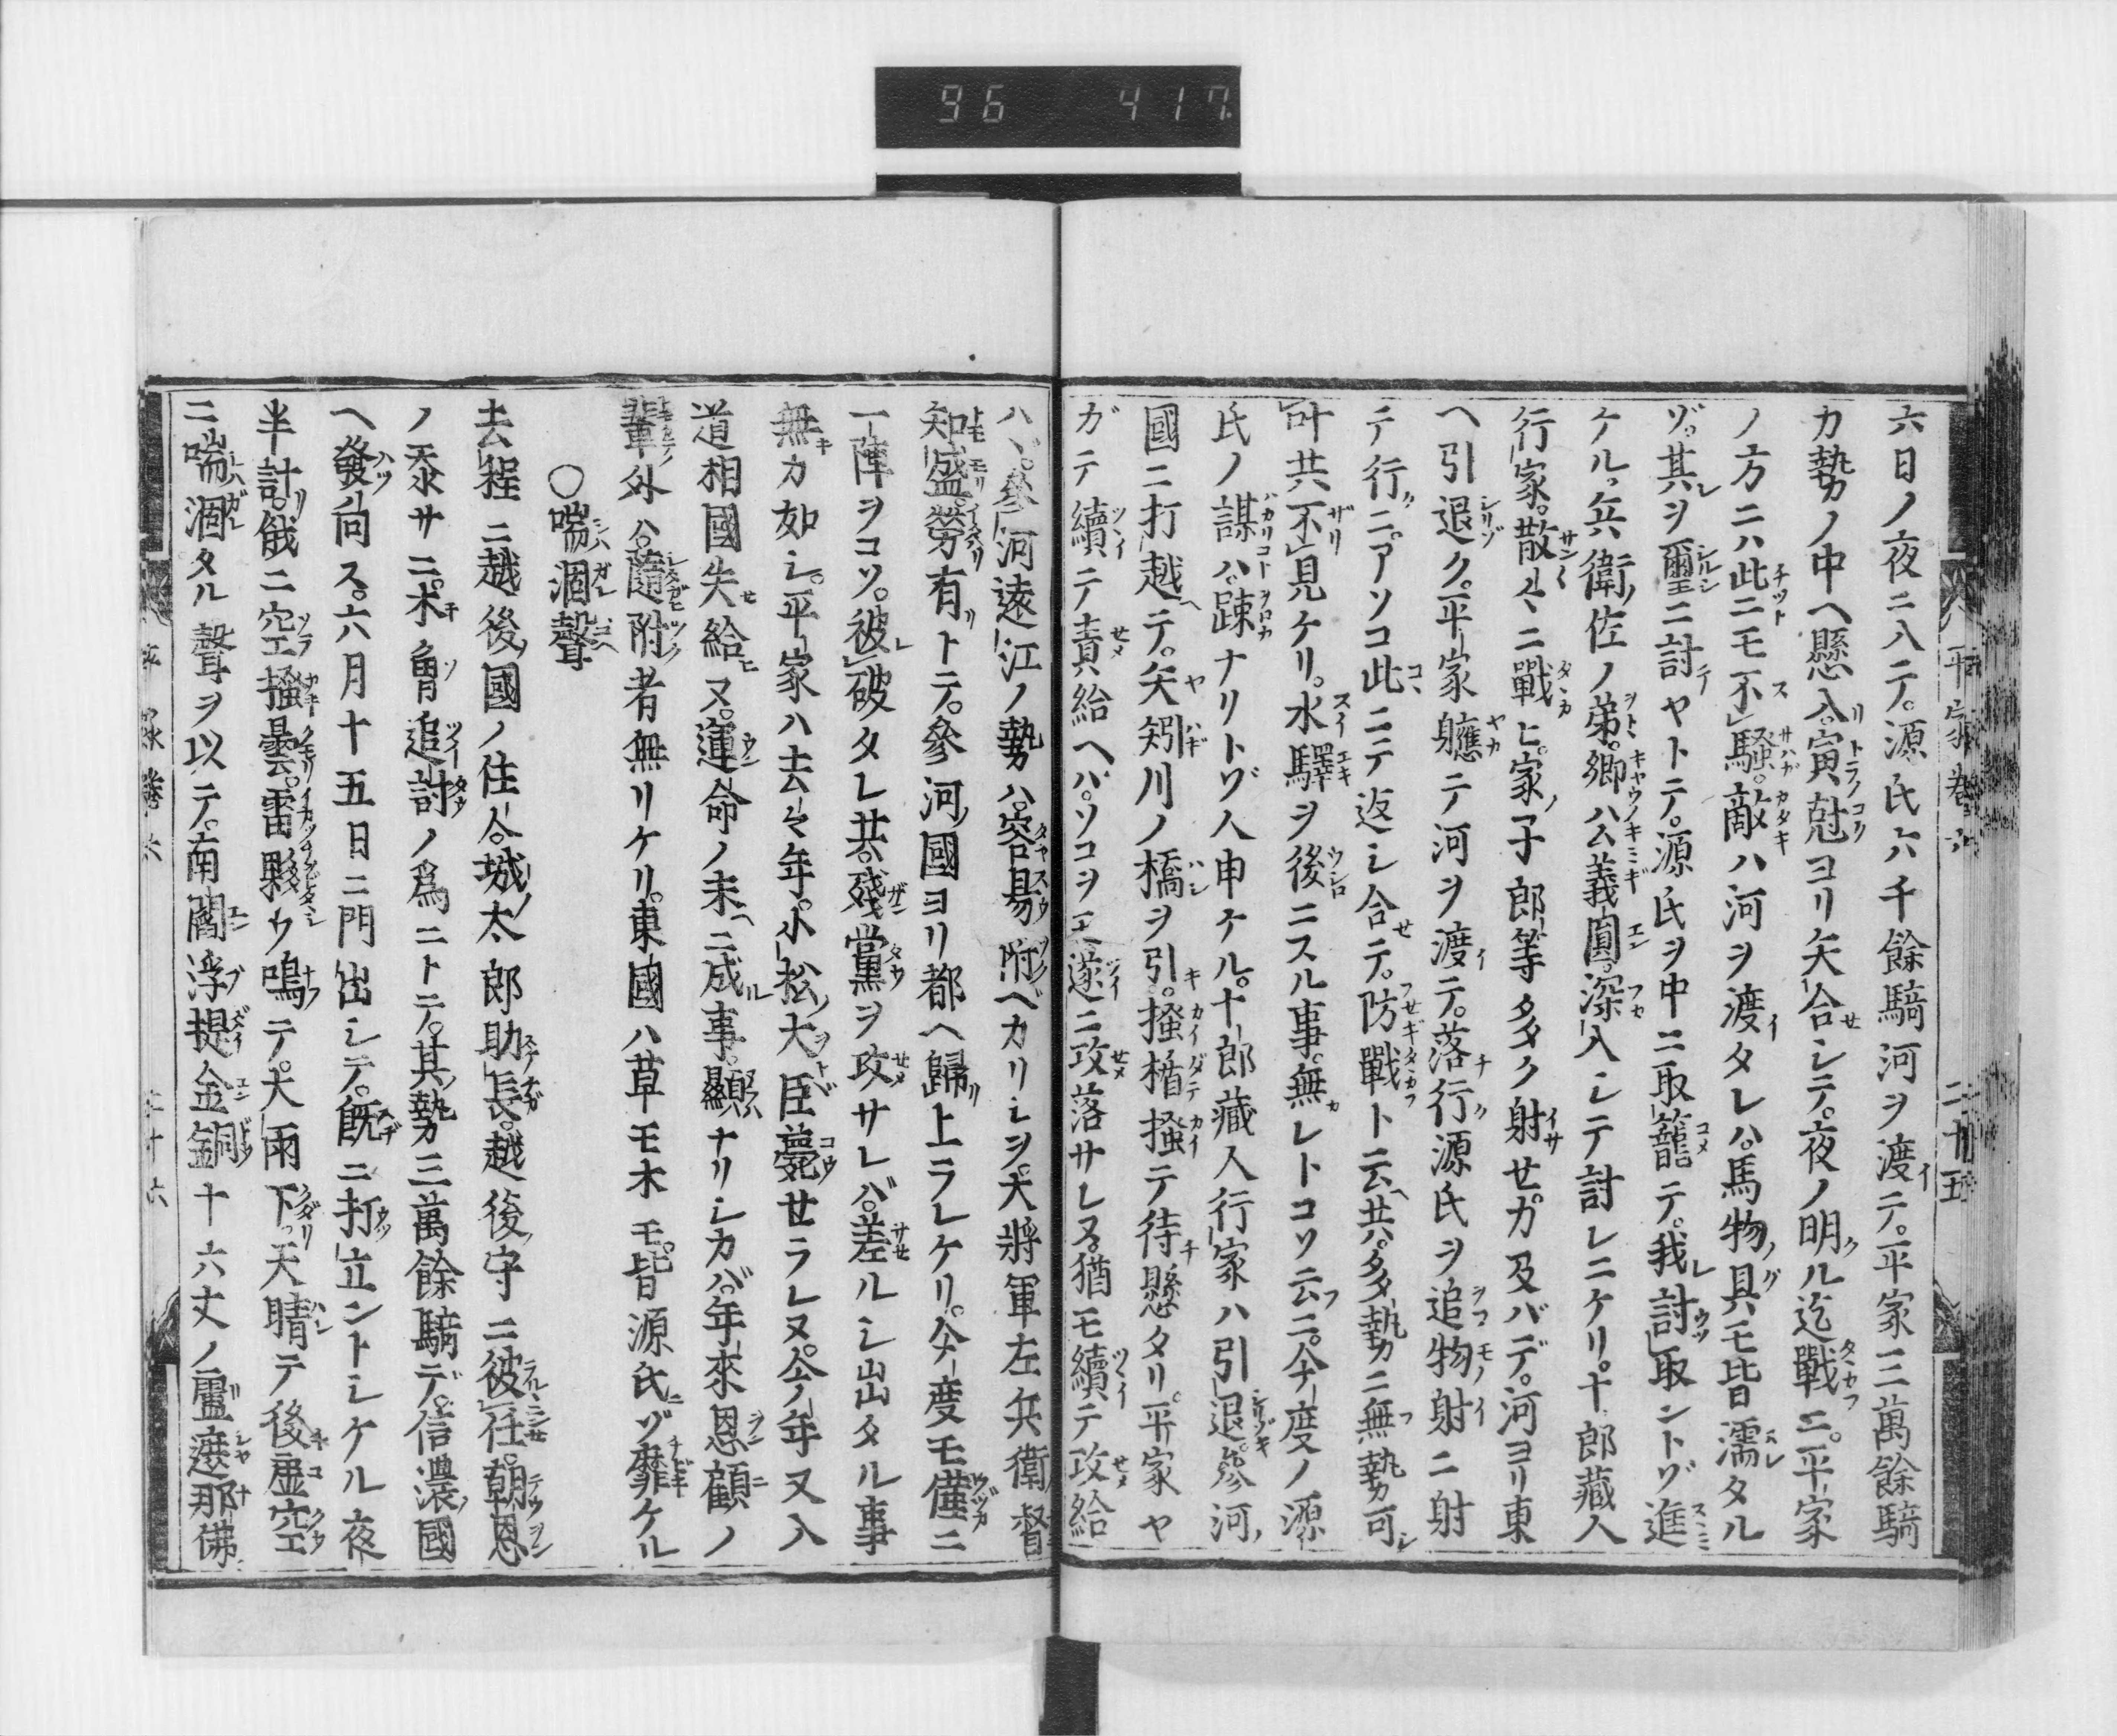 96 417
平家卷六 二十五
六日ノ夜ニハテ。源氏六千餘騎河ヲ渡テ。平家三萬餘騎
カ勢ノ中ヘ懸入。寅尅ヨリ矢合シテ。夜ノ明ル迄戰ニ。平家
ノ方ニハ此ニモ不騷。敵ハ河ヲ渡タレハ。馬物具モ皆濡タル
ゾ。其ヲ璽ニ討ヤトテ。源氏ヲ中ニ取籠テ。我討取ントゾ進
ケル。兵衛佐ノ弟。卿公義圓。深入シテ討レニケリ。十郎藏人
行家。散々ニ戰ヒ。家子郎等多ク射セガ及バデ。河ヨリ東
ヘ引退ク。平家軈テ河ヲ渡テ。落行源氏ヲ追物射ニ射
テ行ニ。アソコ此ニテ返シ合セテ。防戰ト云共。多勢ニ無勢可
叶共不見ケリ。水驛ヲ後ニスル事。無レトコソ云ニ。今度ノ源
氏ノ謀ハ。踈ナリトゾ人申ケル。十郎藏人行家ハ引退。參河
國ニ打越テ。矢矧川ノ橋ヲ引。掻楯掻テ待懸タリ。平家ヤ
ガテ續テ責給ヘバ。ソコヲエ遂ニ攻落サレヌ。猶モ續テ攻給
ハヾ。參河遠江ノ勢ハ。容易附ベカリシヲ。大將軍左兵衛督
知盛。勞有トテ。參河國ヨリ都ヘ歸上ラレケリ。今度モ僅ニ
一陣ヲコソ。彼破タレ共。殘黨ヲ攻サレバ。差ルシ出タル事
無カ如シ。平家ハ去々年。小松大臣薨セラレヌ。今年又入
道相國失給ヌ。運命ノ末ニ成事。顯ナリシカバ。年來恩顧ノ
輩外ハ。隨附者無リケリ。東國ハ草モ木モ。皆源氏ゾ靡ケル
○喘涸聲
去程ニ越後國ノ住人。城太郎助長。越後守ニ彼任。朝恩
ノ忝サニ。木曾追討ノ爲ニトテ。其勢三萬餘騎デ。信濃國
ヘ發向ス。六月十五日ニ門出シテ。既ニ打立ントシケル夜
半計。俄ニ空掻曇。雷夥ウ鳴テ。大雨下。天晴テ後虚空
ニ喘涸タル聲ヲ以テ。南閻浮提金銅十六丈ノ盧遮那佛